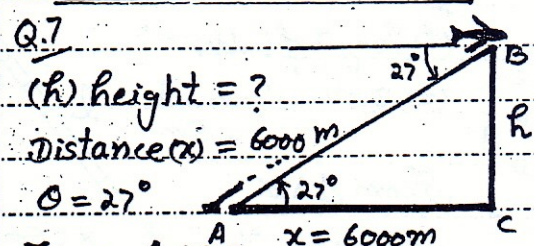 Q.7
(h) height = ?
Distance(x) = 6000 m
θ = 27°
27°
B
h
27°
A
x = 6000m
C